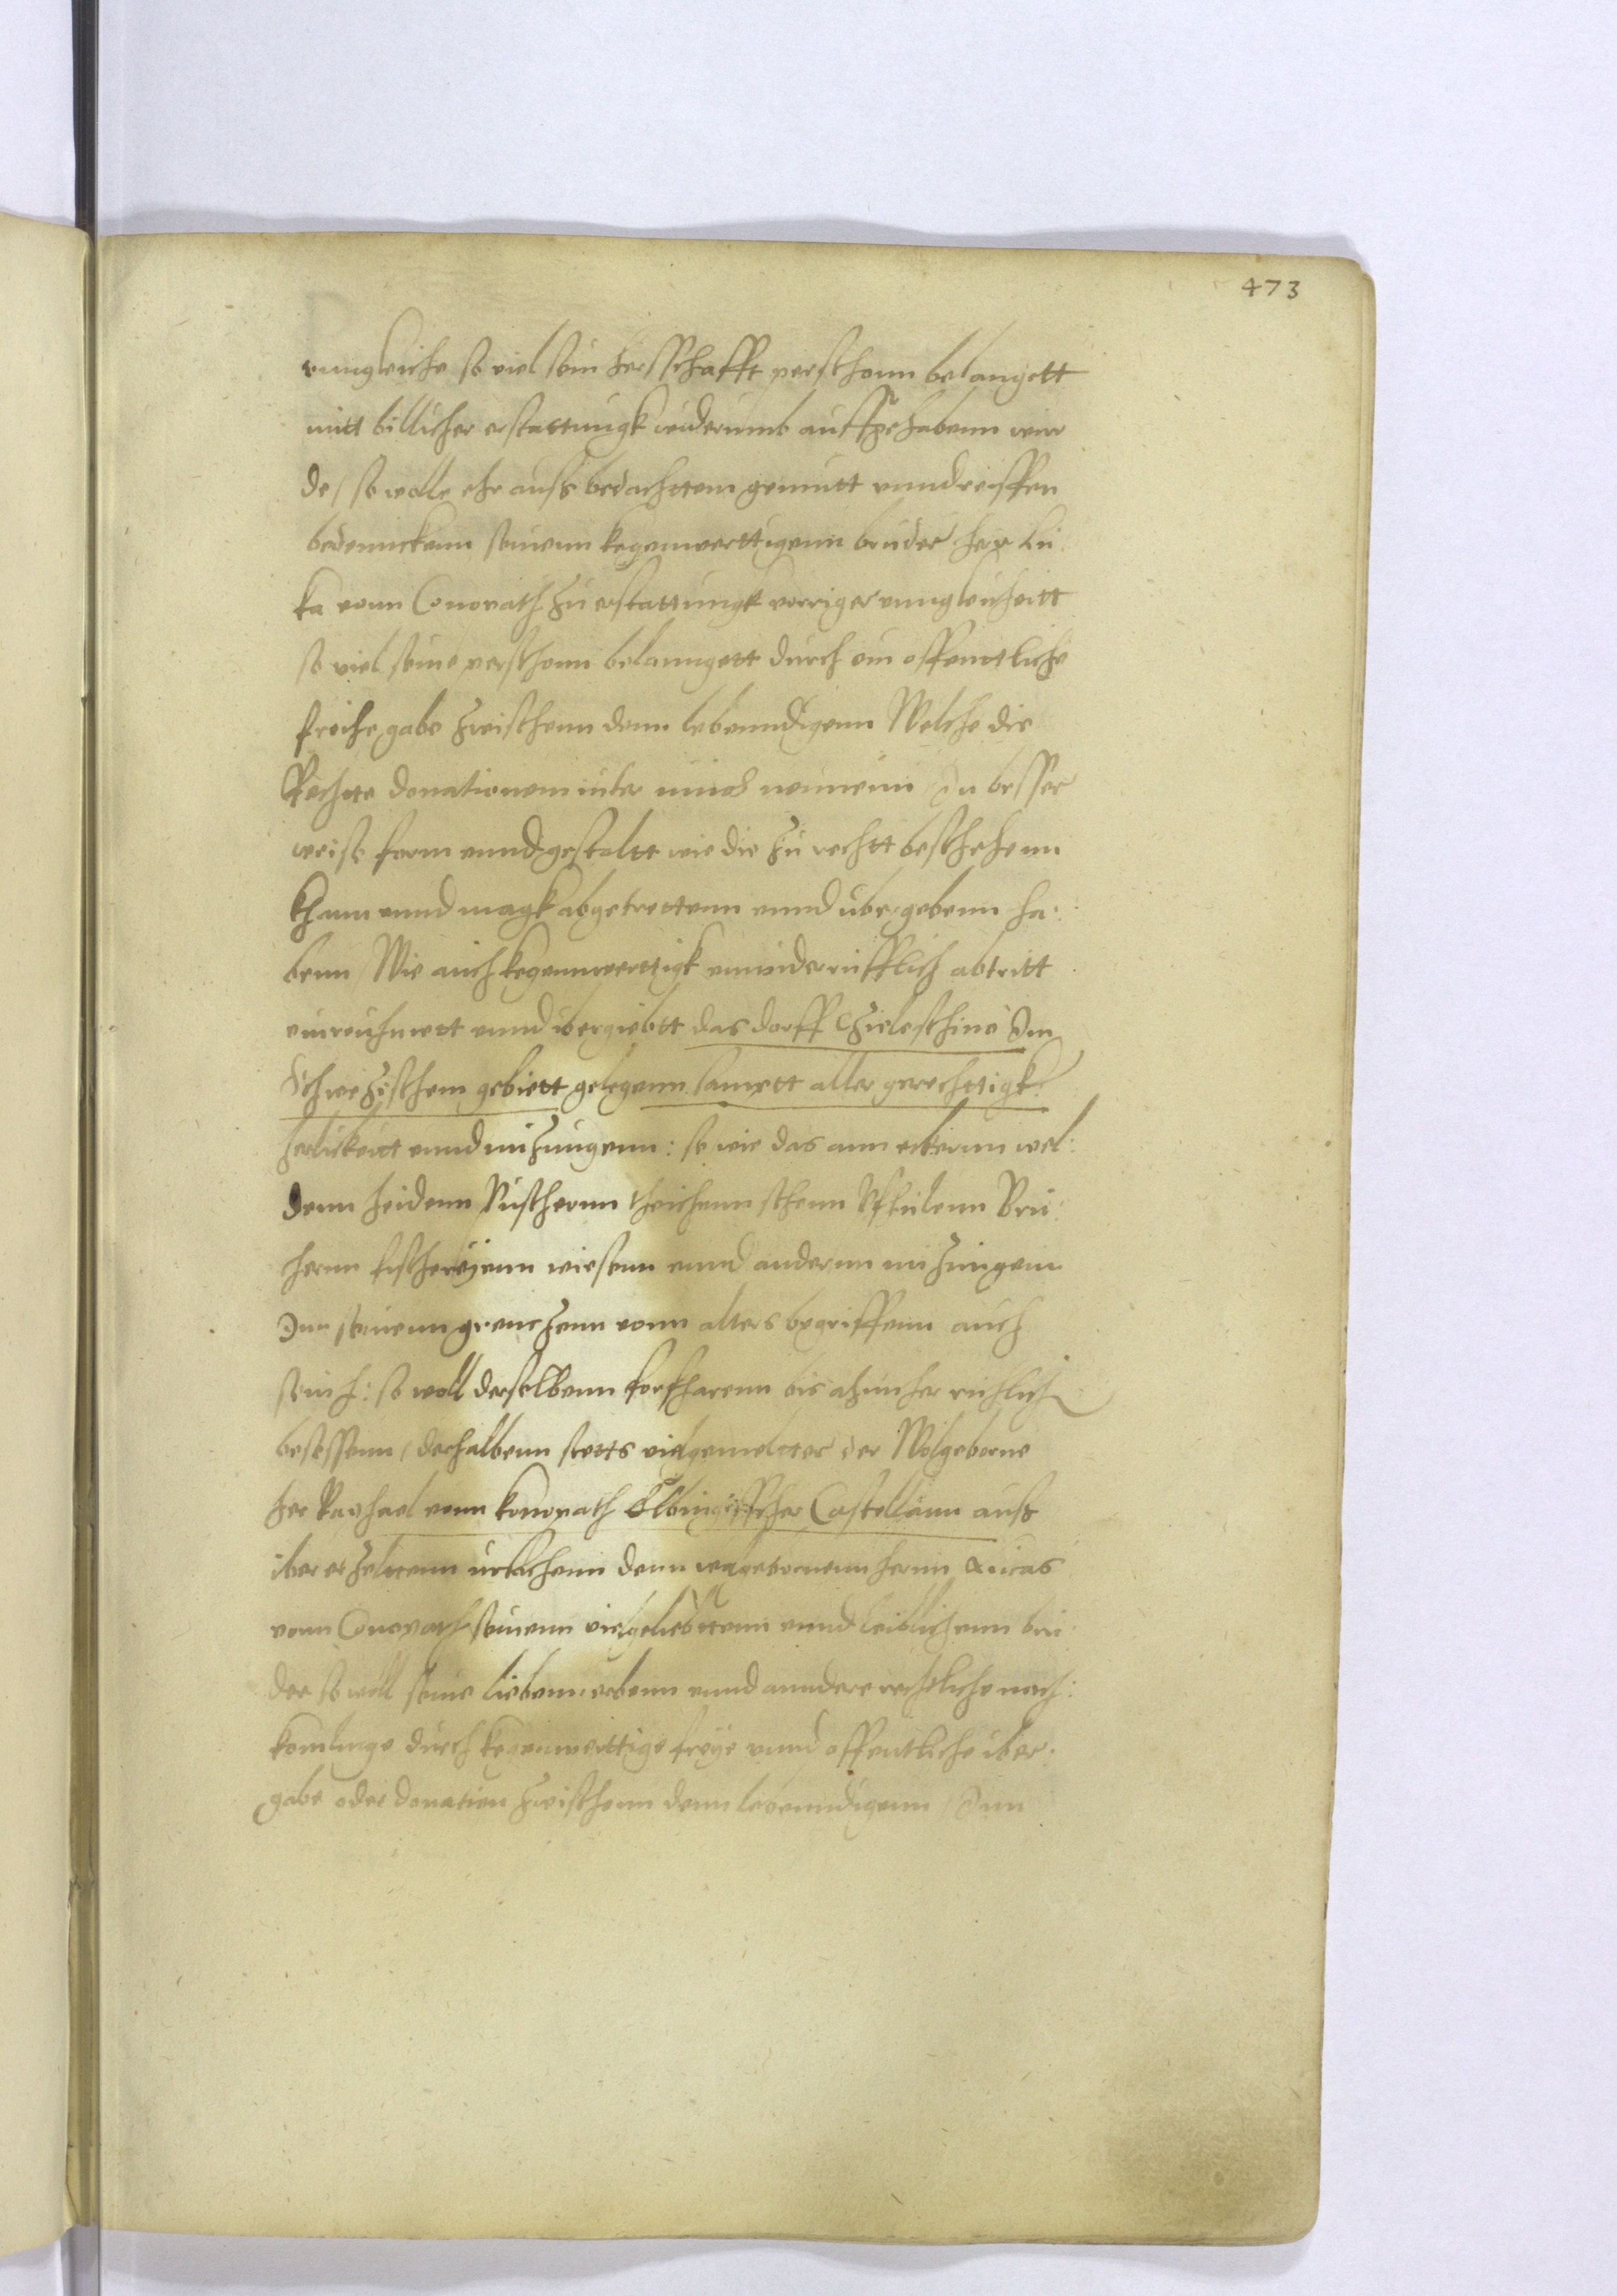 473
vungleiche so viel sein herschafft perschonn belangett
mitt billicher erstattungk widerumb auffgehabenn wur
de / so wolle ehr auss bedachttem gemutt vnnd reiffen
bedennckenn seinenn kegenwerttigenn bruder her Lu
ka vonn Conopath zu erstattungk vorriger vnngleicheitt
so viel seine perschonn belanngett durch ein offenttliche
freihe gabe zwischenn denn lebenndigenn Welche die
Rechtte donationem inter uiuos nennenn / In besser
weise form vnnd gestaltt wie die zu rechtt beschehenn
khann vnnd magk abgetrettenn vnnd ubergebenn ha:
benn / Wie auch kegennwerttigk vnwiderrufflich abtritt
einreuhmett vnnd ubergiebtt das dorff Im
Schwezischem gebiett gelegenn sampt aller gerechttigk:
herlickeitt vnnd nuzungenn: so wie das ann eckernn wel:
denn heidenn Puschernn theichenn sehenn Bru:
chernn fischereyenn wiesenn vnnd andernn nuzungenn
Inn seinenn grenczenn vonn alters begriffenn auch
sein h: so woll derselbenn forfharenn bis ahnher ruhlich
besessenn / derhalbenn stetts vielgemeltter der Wolgeborne
her Raphael vonn konopath Elbingischer Castellann auss
uber erzeltenn ursachenn denn wolgebornenn hernn Lucas
vonn Conopath seinenn vielgeliebttenn vnnd leiblichenn bru
der so woll seine liebenn erbenn vnnd anndere rechtliche nach:
komlinge durch kegenwerttige freye vnnd offentliche uber:
gabe oder donation zwischenn denn lebenndigenn / Inn